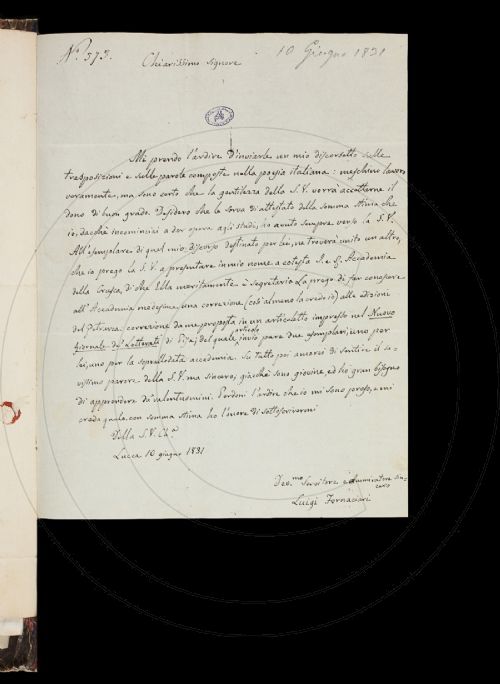 N.º 373.
10 Giugno 1831
Chiarissimo Signore
Mi prendo l'ardire d'inviarle un mio discorsetto sulle
trasposizioni e sulle parole composte nella poesia italiana: meschino lavoro
veramente, ma sono certo che la gentilezza della S.V. vorrà accettarne il
dono di buon grado. Desidero che le serva di attestato della somma stima che
io, dacchè incominciai a dar opera agli studi, ho avuto sempre verso la S.V.
All'esemplare di quel mio discorso destinato per lei, ne troverà unito un altro,
che io prego la S.V. a presentare in mio nome a cotesta I. e R. Accademia
della Crusca, di che Ella meritamente è segretario. La prego di far conoscere
all'Accademia medesima una correzione (così almeno la credo io) alle edizioni
del Petrarca: correzione da me proposta in un articoletto impresso nel Nuovo
Giornale de' Letterati di Pisa; del quale articolo invio pure due esemplari, uno per
lei, uno per la soprallodata accademia. Su tutto poi amerei di sentire il sa-
vissimo parere della S.V. ma sincero, giacchè sono giovine, ed ho gran bisogno
di apprendere da' valentuomini. Perdoni l'ardire che io mi sono preso, e mi
creda quale con somma stima ho l'onore di sottoscrivermi
Della S.V. Ch.ª
Lucca 10 giugno 1831
Dev.mo Servitore e Ammiratore sin-
cero
Luigi Fornaciari